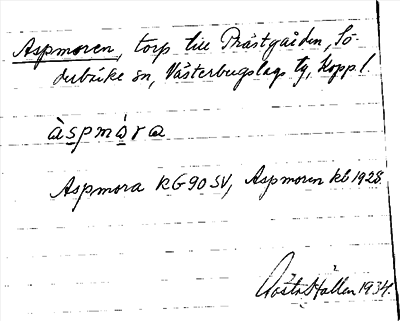 Aspmoren, torp till Prästgården, Sö-
derbärke sn, Västerbergslags tg, Kopp. l.
àspmóra
Aspmora RG 90 SV, Aspmoren kb 1928
Gösta Hallen 1934.